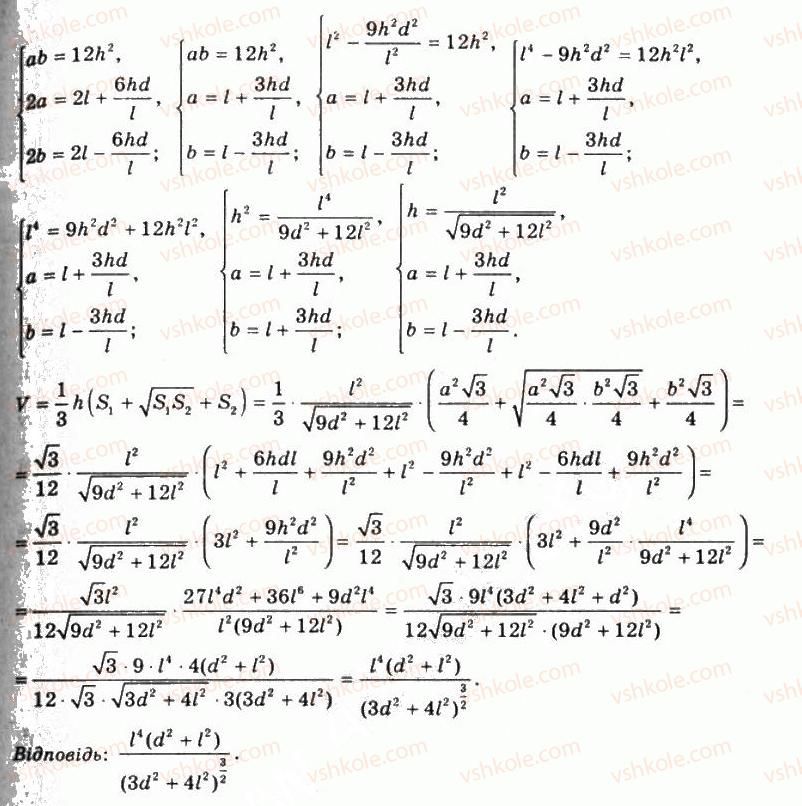 {ab = 12h², 2a = 2l + 6hd/l, 2b = 2l − 6hd/l; {ab = 12h², a = l + 3hd/l, b = l − 3hd/l; {l² − 9h²d²/l² = 12h², a = l + 3hd/l, b = l − 3hd/l; {l⁴ − 9h²d² = 12h²l², a = l + 3hd/l, b = l − 3hd/l;
{l⁴ = 9h²d² + 12h²l², a = l + 3hd/l, b = l − 3hd/l; {h² = l⁴/(9d² + 12l²), a = l + 3hd/l, b = l + 3hd/l; {h = l²/√(9d² + 12l²), a = l + 3hd/l, b = l − 3hd/l.
V = 1/3 h(S₁ + √(S₁S₂) + S₂) = 1/3 · l²/√(9d² + 12l²) · (a²√3/4 + √(a²√3/4 · b²√3/4) + b²√3/4) =
= √3/12 · l²/√(9d² + 12l²) · (l² + 6hdl/l + 9h²d²/l² + l² − 9h²d²/l² + l² − 6hdl/l + 9h²d²/l²) =
= √3/12 · l²/√(9d² + 12l²) · (3l² + 9h²d²/l²) = √3/12 · l²/√(9d² + 12l²) · (3l² + 9d²/l² · l⁴/(9d² + 12l²)) =
= √3l²/(12√(9d² + 12l²)) · (27l⁴d² + 36l⁶ + 9d²l⁴)/(l²(9d² + 12l²)) = √3 · 9l⁴(3d² + 4l² + d²)/(12√(9d² + 12l²) · (9d² + 12l²)) =
= √3 · 9 · l⁴ · 4(d² + l²)/(12 · √3 · √(3d² + 4l²) · 3(3d² + 4l²)) = l⁴(d² + l²)/(3d² + 4l²)^(3/2).
Відповідь: l⁴(d² + l²)/(3d² + 4l²)^(3/2).